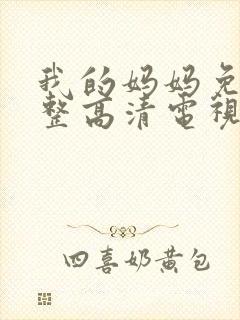 我的妈妈免
整高清電視
四喜奶黄包